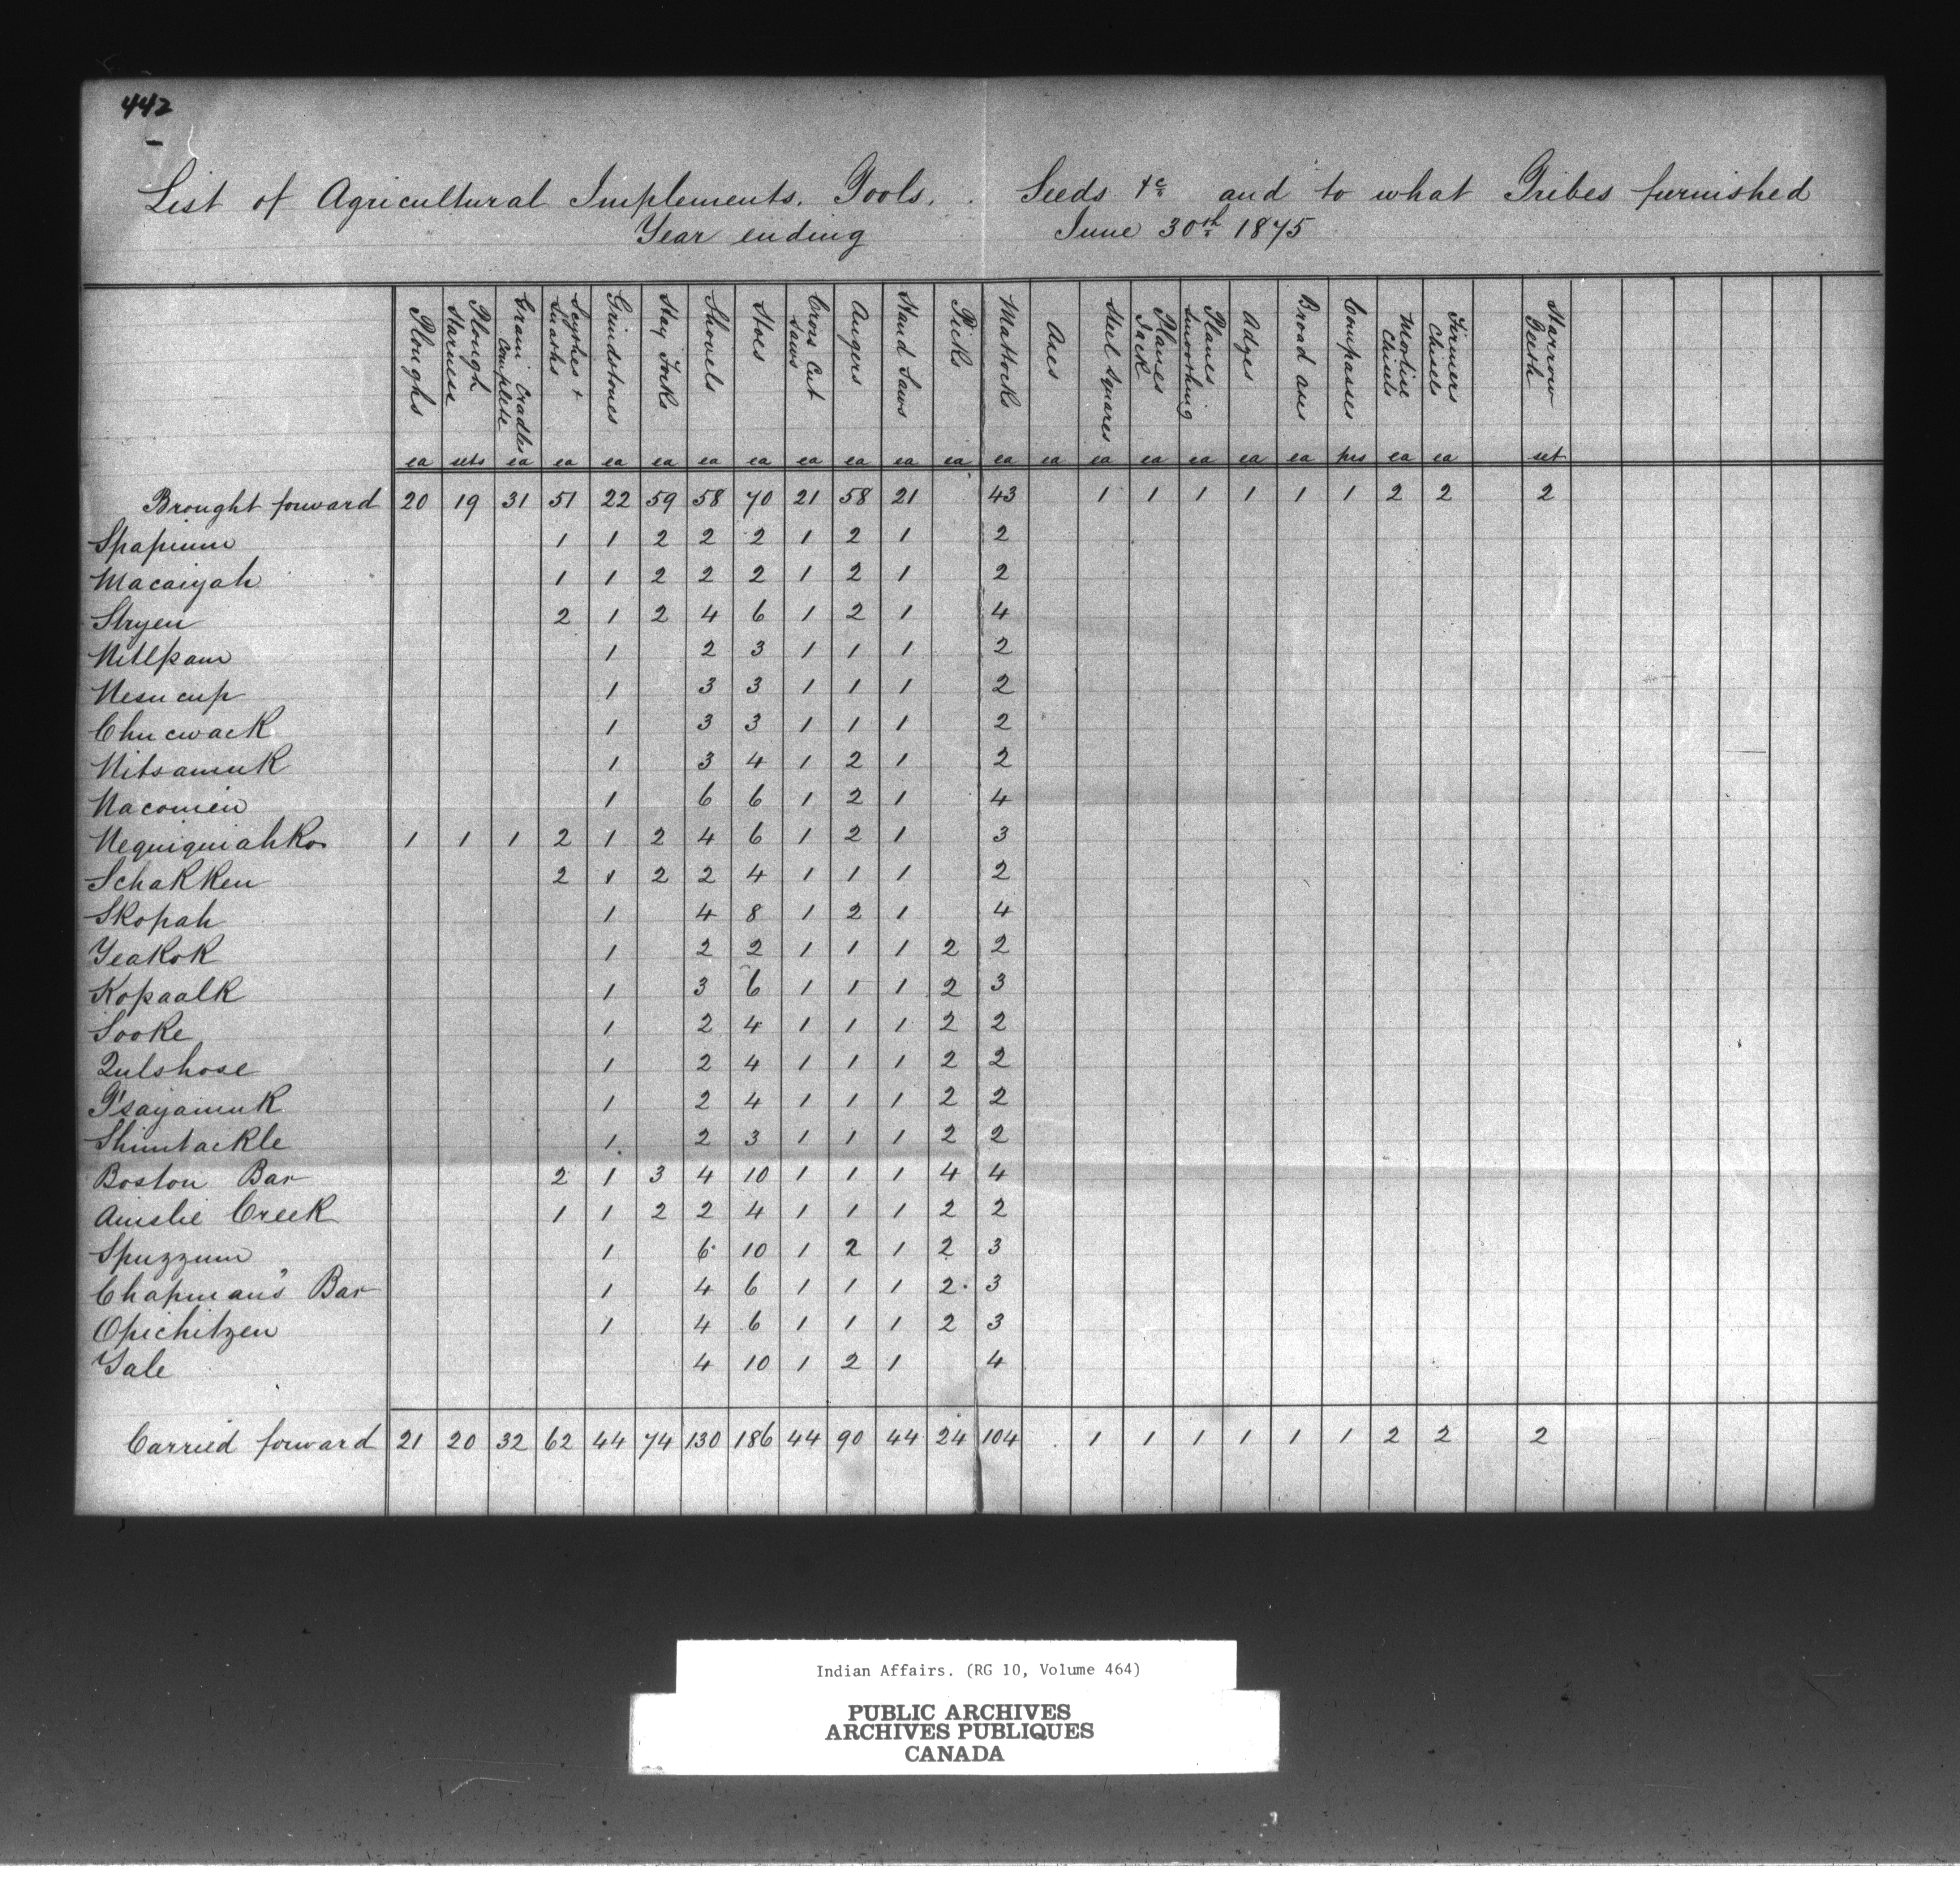 442
List of Agricultural Implements. Tools. Seeds &c and to what Tribes furnished
Year ending June 30th 1875
Ploughs Plough Harness Grain Cradles Complete Scythes & Snaths Grindstones Hay Forks Shovels Hoes Cross Cut Saws Augers Hand Saws Picks Mattocks Axes Steel Squares Planes Jack Planes Smoothing Adzes Broad axes Compasses Mortise Chisels Firmers Chisels Harrow Teeth
ea sets ea ea ea ea ea ea ea ea ea ea ea ea ea ea ea ea ea prs ea ea set
Brought forward 20 19 31 51 22 59 58 70 21 58 21 43 1 1 1 1 1 1 2 2 2
Spapium 1 1 2 2 2 1 2 1 2
Macaiyah 1 1 2 2 2 1 2 1 2
Stryen 2 1 2 4 6 1 2 1 4
Nitlpam 1 2 3 1 1 1 2
Nesucup 1 3 3 1 1 1 2
Chucwack 1 3 3 1 1 1 2
Nitsamuk 1 3 4 1 2 1 2
Nacomen 1 6 6 1 2 1 4
Nequiquiahkos 1 1 1 2 1 2 4 6 1 2 1 3
Schakken 2 1 2 2 4 1 1 1 2
Skopah 1 4 8 1 2 1 4
Yeakok 1 2 2 1 1 1 2 2
Kopaalk 1 3 6 1 1 1 2 3
Sooke 1 2 4 1 1 1 2 2
Qulshose 1 2 4 1 1 1 2 2
T'sayamuk 1 2 4 1 1 1 2 2
Shimtackle 1 2 3 1 1 1 2 2
Boston Bar 2 1 3 4 10 1 1 1 4 4
Ainslie Creek 1 1 2 2 4 1 1 1 2 2
Spuzzum 1 6 10 1 2 1 2 3
Chapman's Bar 1 4 6 1 1 1 2 3
Opichitzen 1 4 6 1 1 1 2 3
Yale 4 10 1 2 1 4
Carried forward 21 20 32 62 44 74 130 186 44 90 44 24 104 1 1 1 1 1 1 2 2 2
Indian Affairs. (RG 10, Volume 464)
PUBLIC ARCHIVES
ARCHIVES PUBLIQUES
CANADA